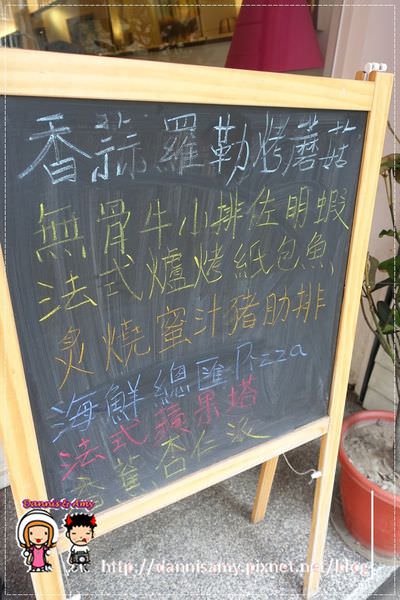 香蒜羅勒烤蘑菇
無骨牛小排佐明蝦
法式爐烤紙包魚
炙燒蜜汁豬肋排
海鮮總匯Pizza
法式蘋果塔
香蕉杏仁派
Dannis & Amy
http://dannisamy.pixnet.net/blog